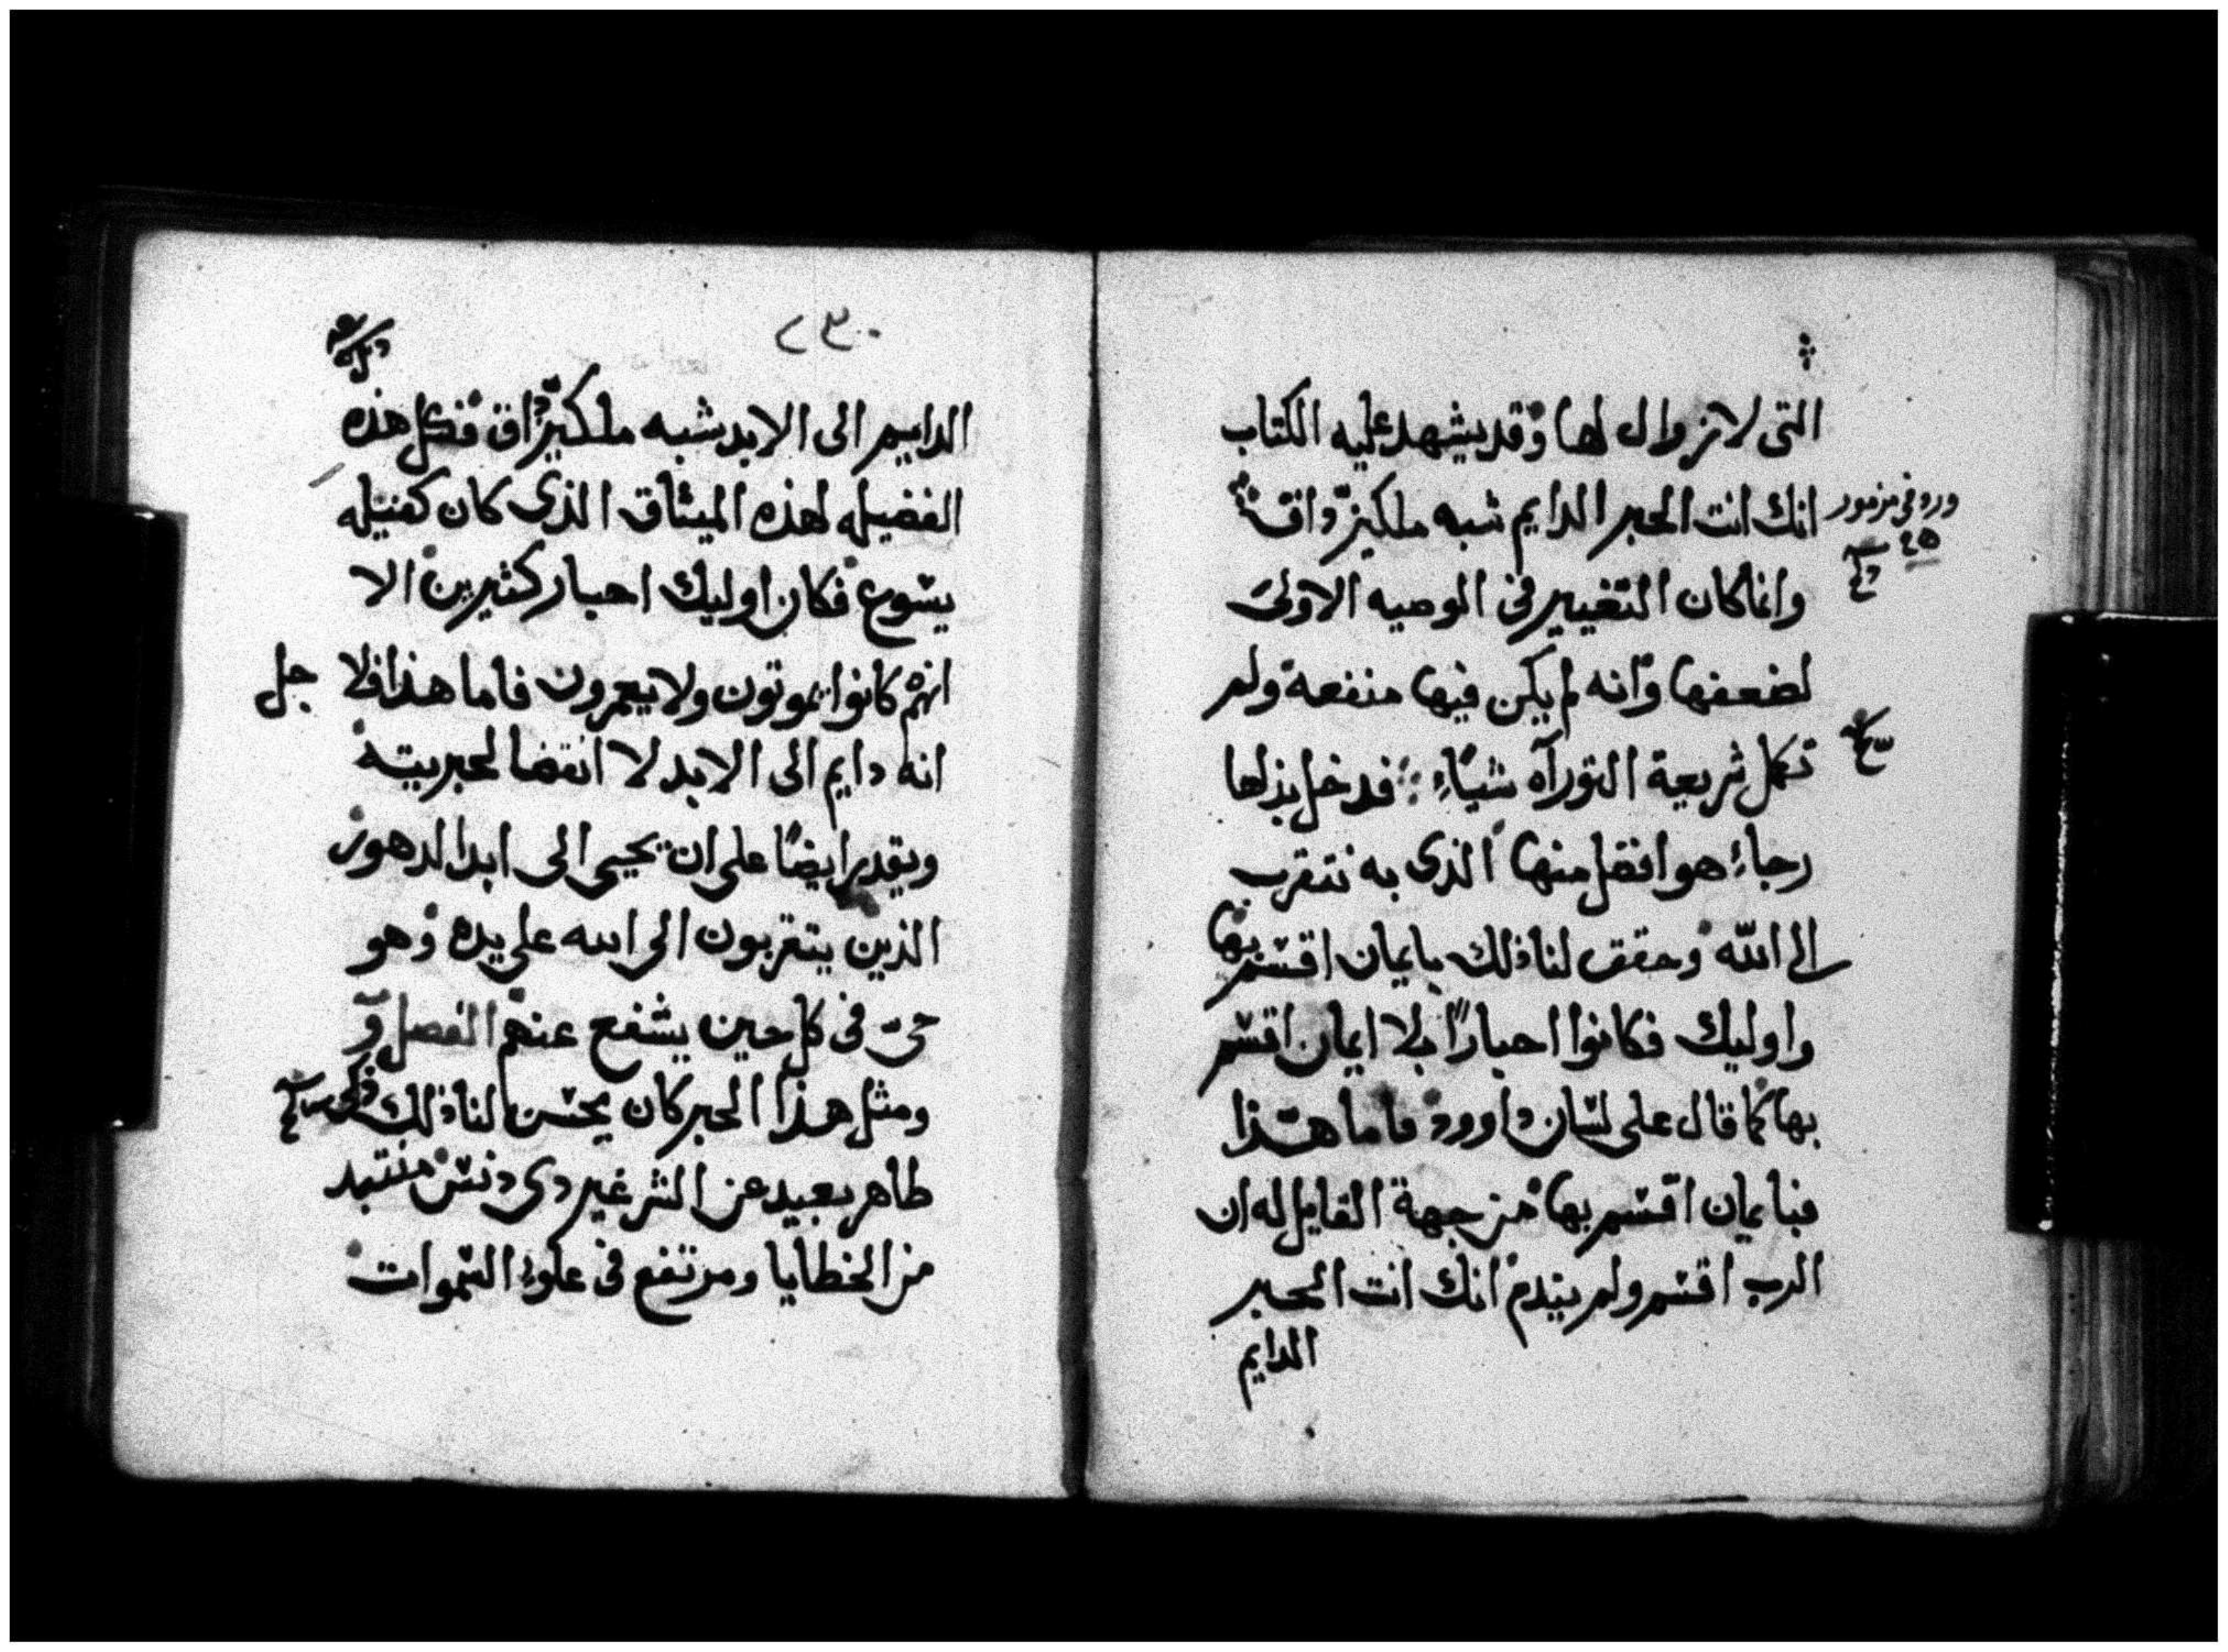 التى لا زوال لها وقد يشهد عليه الكتاب
انك انت الحبر الدايم شبه ملكيزداق
ورد فى مزمور
وانما كان التغيير فى الوصيه الاولى
لضعفها وانه لم يكن فيها منفعة ولم
تكمل شريعة التورآه شياء فدخل بذلها
رجاء هو افضل منها الذى به نتقرب
الى الله وحقق لنا ذلك بايمان اقسم بها
واوليك فكانوا احبارًا بلا ايمان اقسم
بها كما قال على لسان داوود فاما هذا
فبايمان اقسم بها من جهة القايل له ان
الرب اقسم ولم يندم انك انت الحبر
الدايم
٢٣٠
الدايم الى الابد شبه ملكيزداق فكل هذه
الفضيله لهذه الميثاق الذى كان كفيله
يسوع فكان اوليك احبار كثيرين الا
انهم كانوا يموتون ولا يعمرون فاما هذا فلا جل
انه دايم الى الابد لا انقضا لحبريته
ويقدر ايضًا على ان يحيى الى ابد الدهور
الذين يتقربون الى الله على يده وهو
حىّ فى كل حين يشفع عنهم الفصل
ومثل هذا الحبر كان يحسن لنا ذلك
طاهر بعيد عن الشر غير دى دنس منتبد
من الخطايا ومرتفع فى علو السموات